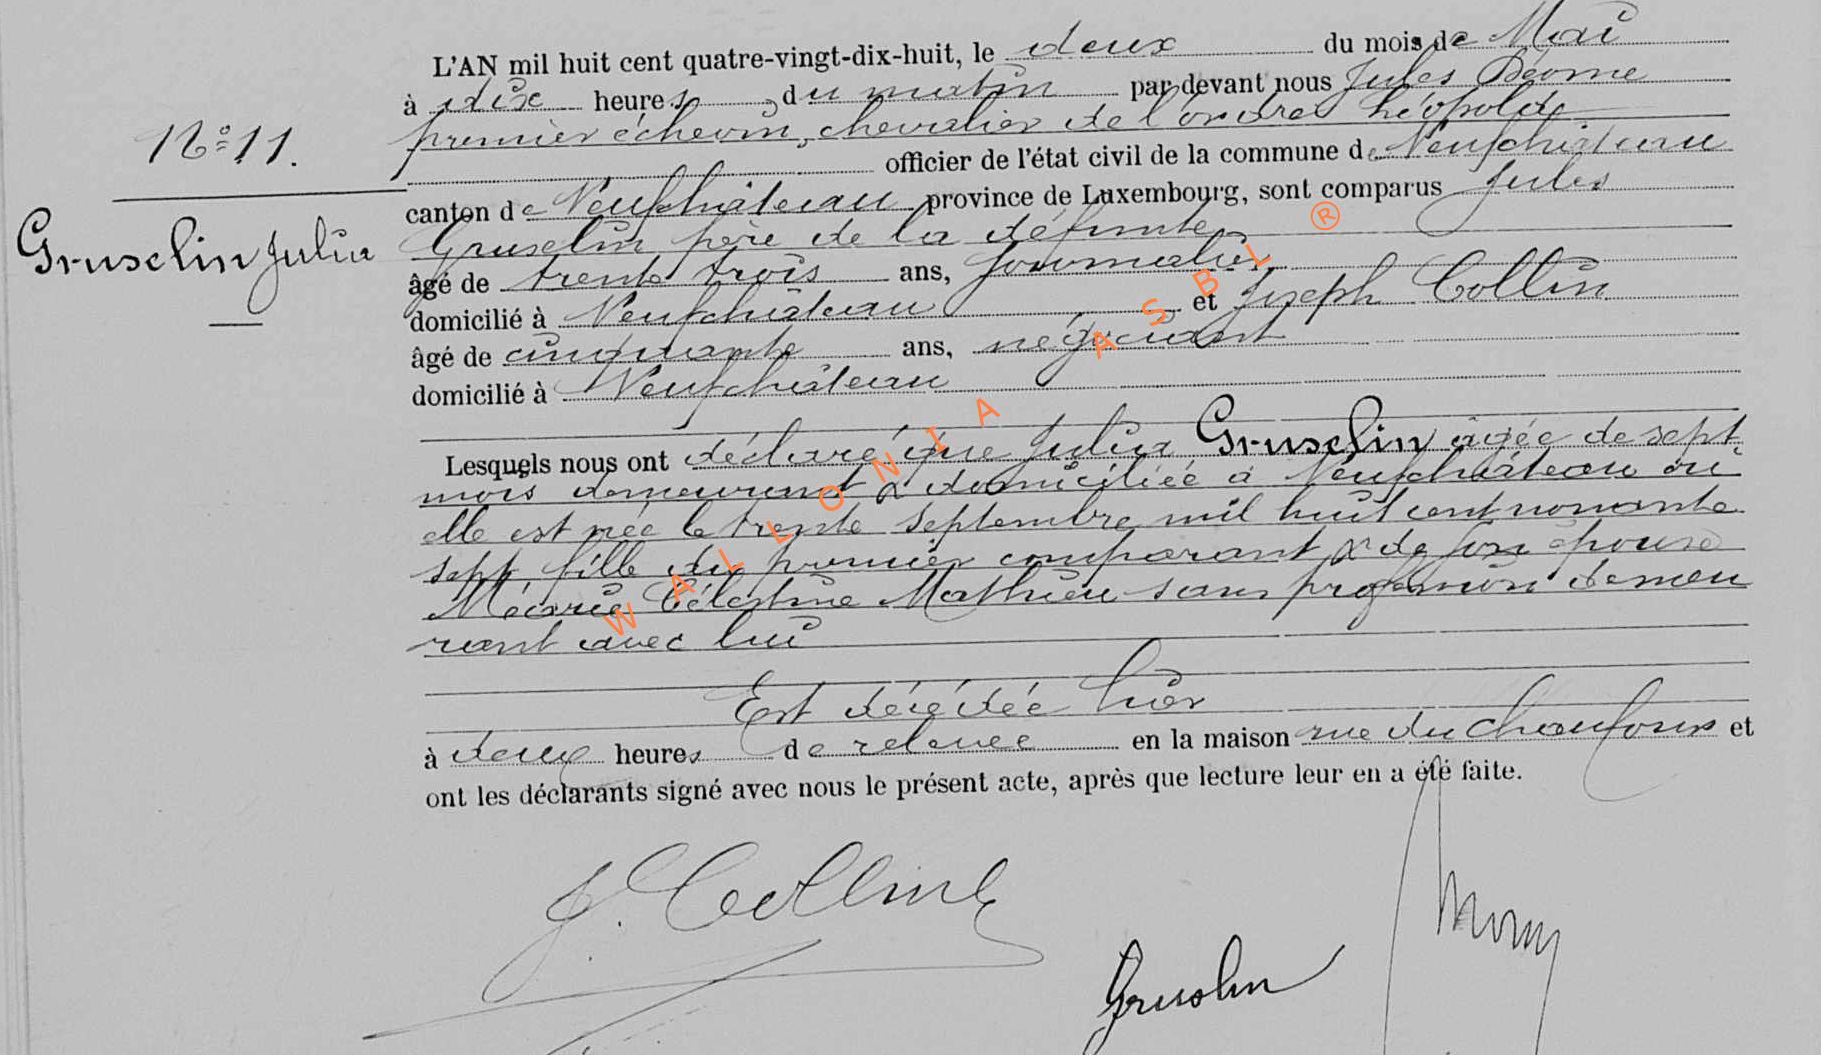 L'AN mil huit cent quatre-vingt-dix-huit, le deux du mois de Mai
à dix heures, du matin par devant nous Jules
premier échevin, chevalier de l'ordre Léopold
N° 11.
officier de l'état civil de la commune de Neufchâteau
canton de Neufchâteau province de Luxembourg, sont comparus Jules
Gruselin Julia
Gruselin père de la défunte
âgé de trente trois ans, Journalier
domicilié à Neufchâteau et Joseph Collin
âgé de cinquante ans, négociant
domicilié à Neufchâteau
Lesquels nous ont déclaré que Julia Gruselin âgée de sept
mois demeurant & domiciliée à Neufchâteau où
elle est née le trente Septembre mil huit cent nonante
sept fille du premier comparant & de son épouse
Marie Célestine Mathieu sans profession demeu
rant avec lui
Est décédée hier
à deux heures de relevée en la maison rue du Chaufour et
ont les déclarants signé avec nous le présent acte, après que lecture leur en a été faite.
J. Collin
Gruselin
WALLONIA ASBL ®